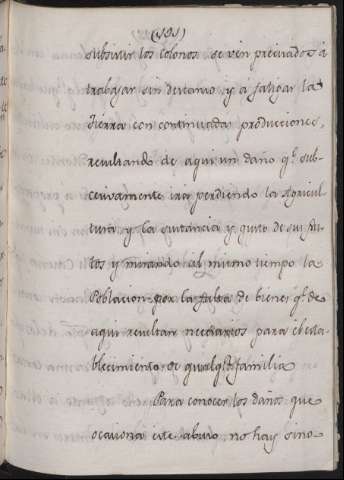 (191)
subsistir los Colonos se vén precisados á
trabajar sin descanso y á fatigar la
tierra con continuadas producciones,
resultando de aqui un daño q.e sub-
cesivamente irá perdiendo la Agricul-
tura y la sustancia y gusto de sus fru-
tos y minando al mismo tiempo la
Poblacion por la falta de bienes q.e de
aqui resultan necesarios para el esta-
blecimiento de qualq.a familia
Para conocer los daños que
ocasiona este abuso, no hay sino